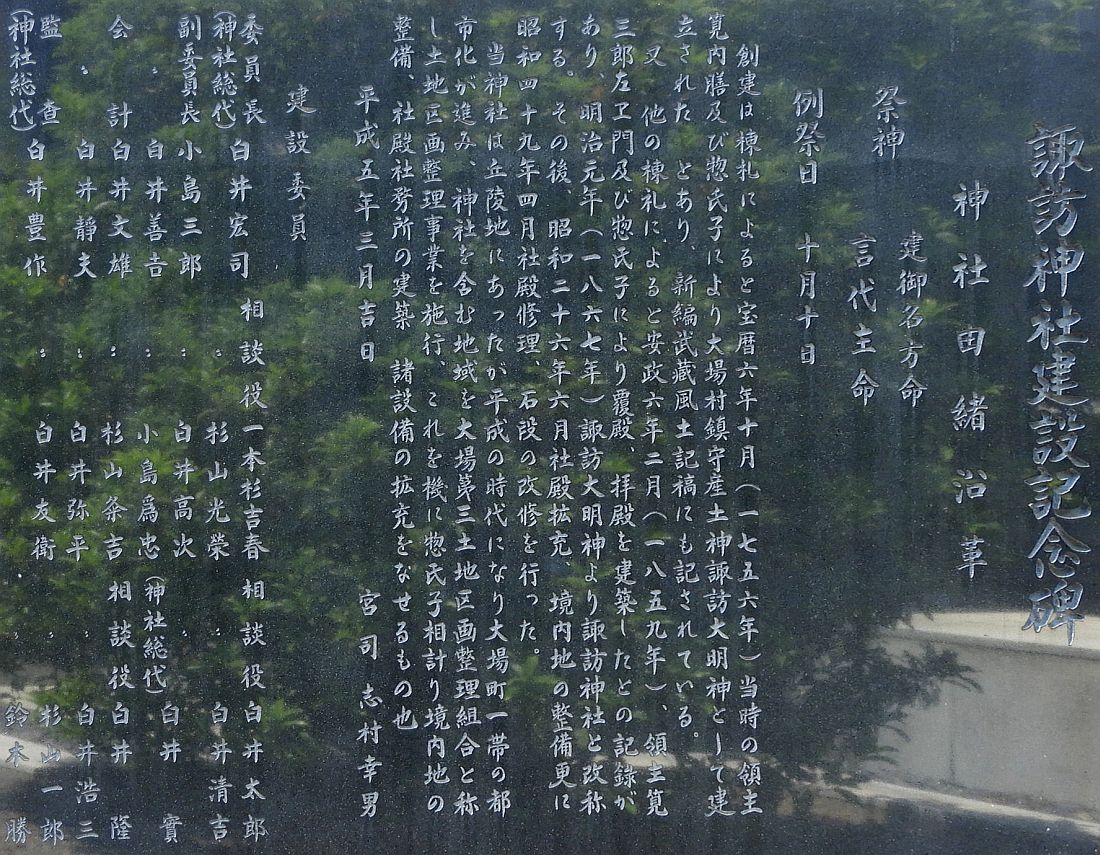 諏訪神社建設記念碑
神社田緒沿革
祭神　建御名方命
言代主命
例祭日　十月十日
創建は棟札によると宝暦六年十月（一七五六年）当時の領主
筧内膳及び惣氏子により大場村鎮守産土神諏訪大明神として建
立された　とあり、新編武蔵風土記稿にも記されている。
又　他の棟礼によると安政六年二月（一八五九年）、領主筧
三郎左ヱ門及び惣氏子により覆殿、拝殿を建築したとの記録が
あり、明治元年（一八六七年）諏訪大明神より諏訪神社と改称
する。その後、昭和二十六年六月社殿拡充、境内地の整備更に
昭和四十九年四月社殿修理、石段の改修を行った。
当神社は丘陵地にあったが平成の時代になり大場町一帯の都
市化が進み、神社を含む地域を大場第三土地区画整理組合と称
し土地区画整理事業を施行、これを機に惣氏子相計り境内地の
整備、社殿社務所の建築　諸設備の拡充をなせるもの也
平成五年三月吉日　宮司　志村幸男
建設委員
委員長　白井宏司　相談役　一本杉吉春　相談役　白井太郎
（神社総代）　〃　杉山光榮　〃　白井清吉
副委員長　小島三郎　〃　白井高次　〃　白井　實
〃　白井善吉　〃　小島為忠　（神社総代）
会計　白井文雄　〃　杉山条吉　相談役　白井　隆
〃　白井靜夫　〃　白井弥平　〃　白井浩三
監査　白井豊作　〃　白井友衛　〃　杉山一郎
（神社総代）　〃　鈴木　勝